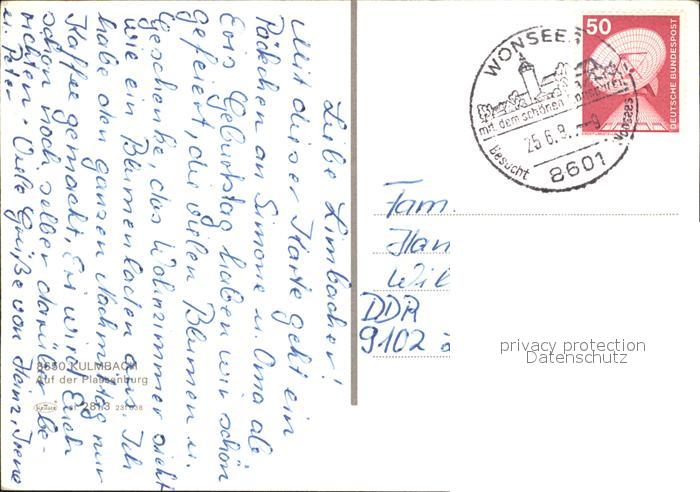 Liebe Limbacher!
Mit dieser Karte geht ein
Päckchen an Simone u. Oma ab
Evis Geburtstag haben wir schön
gefeiert, die vielen Blumen u.
Geschenke, das Wohnzimmer sieht
wie ein Blumenladen aus. Ich
habe den ganzen Nachmittag nur
Kaffee gemacht. Evi wird Euch
schon noch selber darüber be-
richten. Viele Grüße von Heinz, Irene
u. Peter
8650 KULMBACH
Auf der Plassenburg
2813
WONSEES
mit dem schönen
Besucht
Wonsees
25.6.8
8601
50
DEUTSCHE BUNDESPOST
Fam.
Han
Wil
DDR
9102
privacy protection
Datenschutz